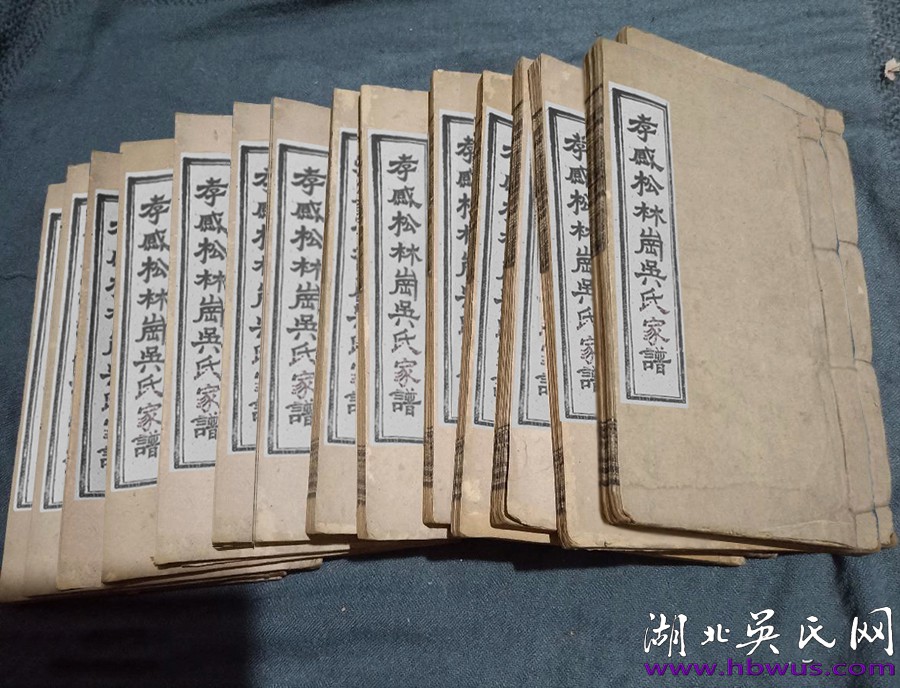 孝感松林崗吳氏家譜
孝感松林崗吳氏家譜
孝感松林崗吳氏家譜
孝感松林崗吳氏家譜
孝感松林崗吳氏家譜
孝感松林崗吳氏家譜
湖北吴氏网
www.hbwus.com